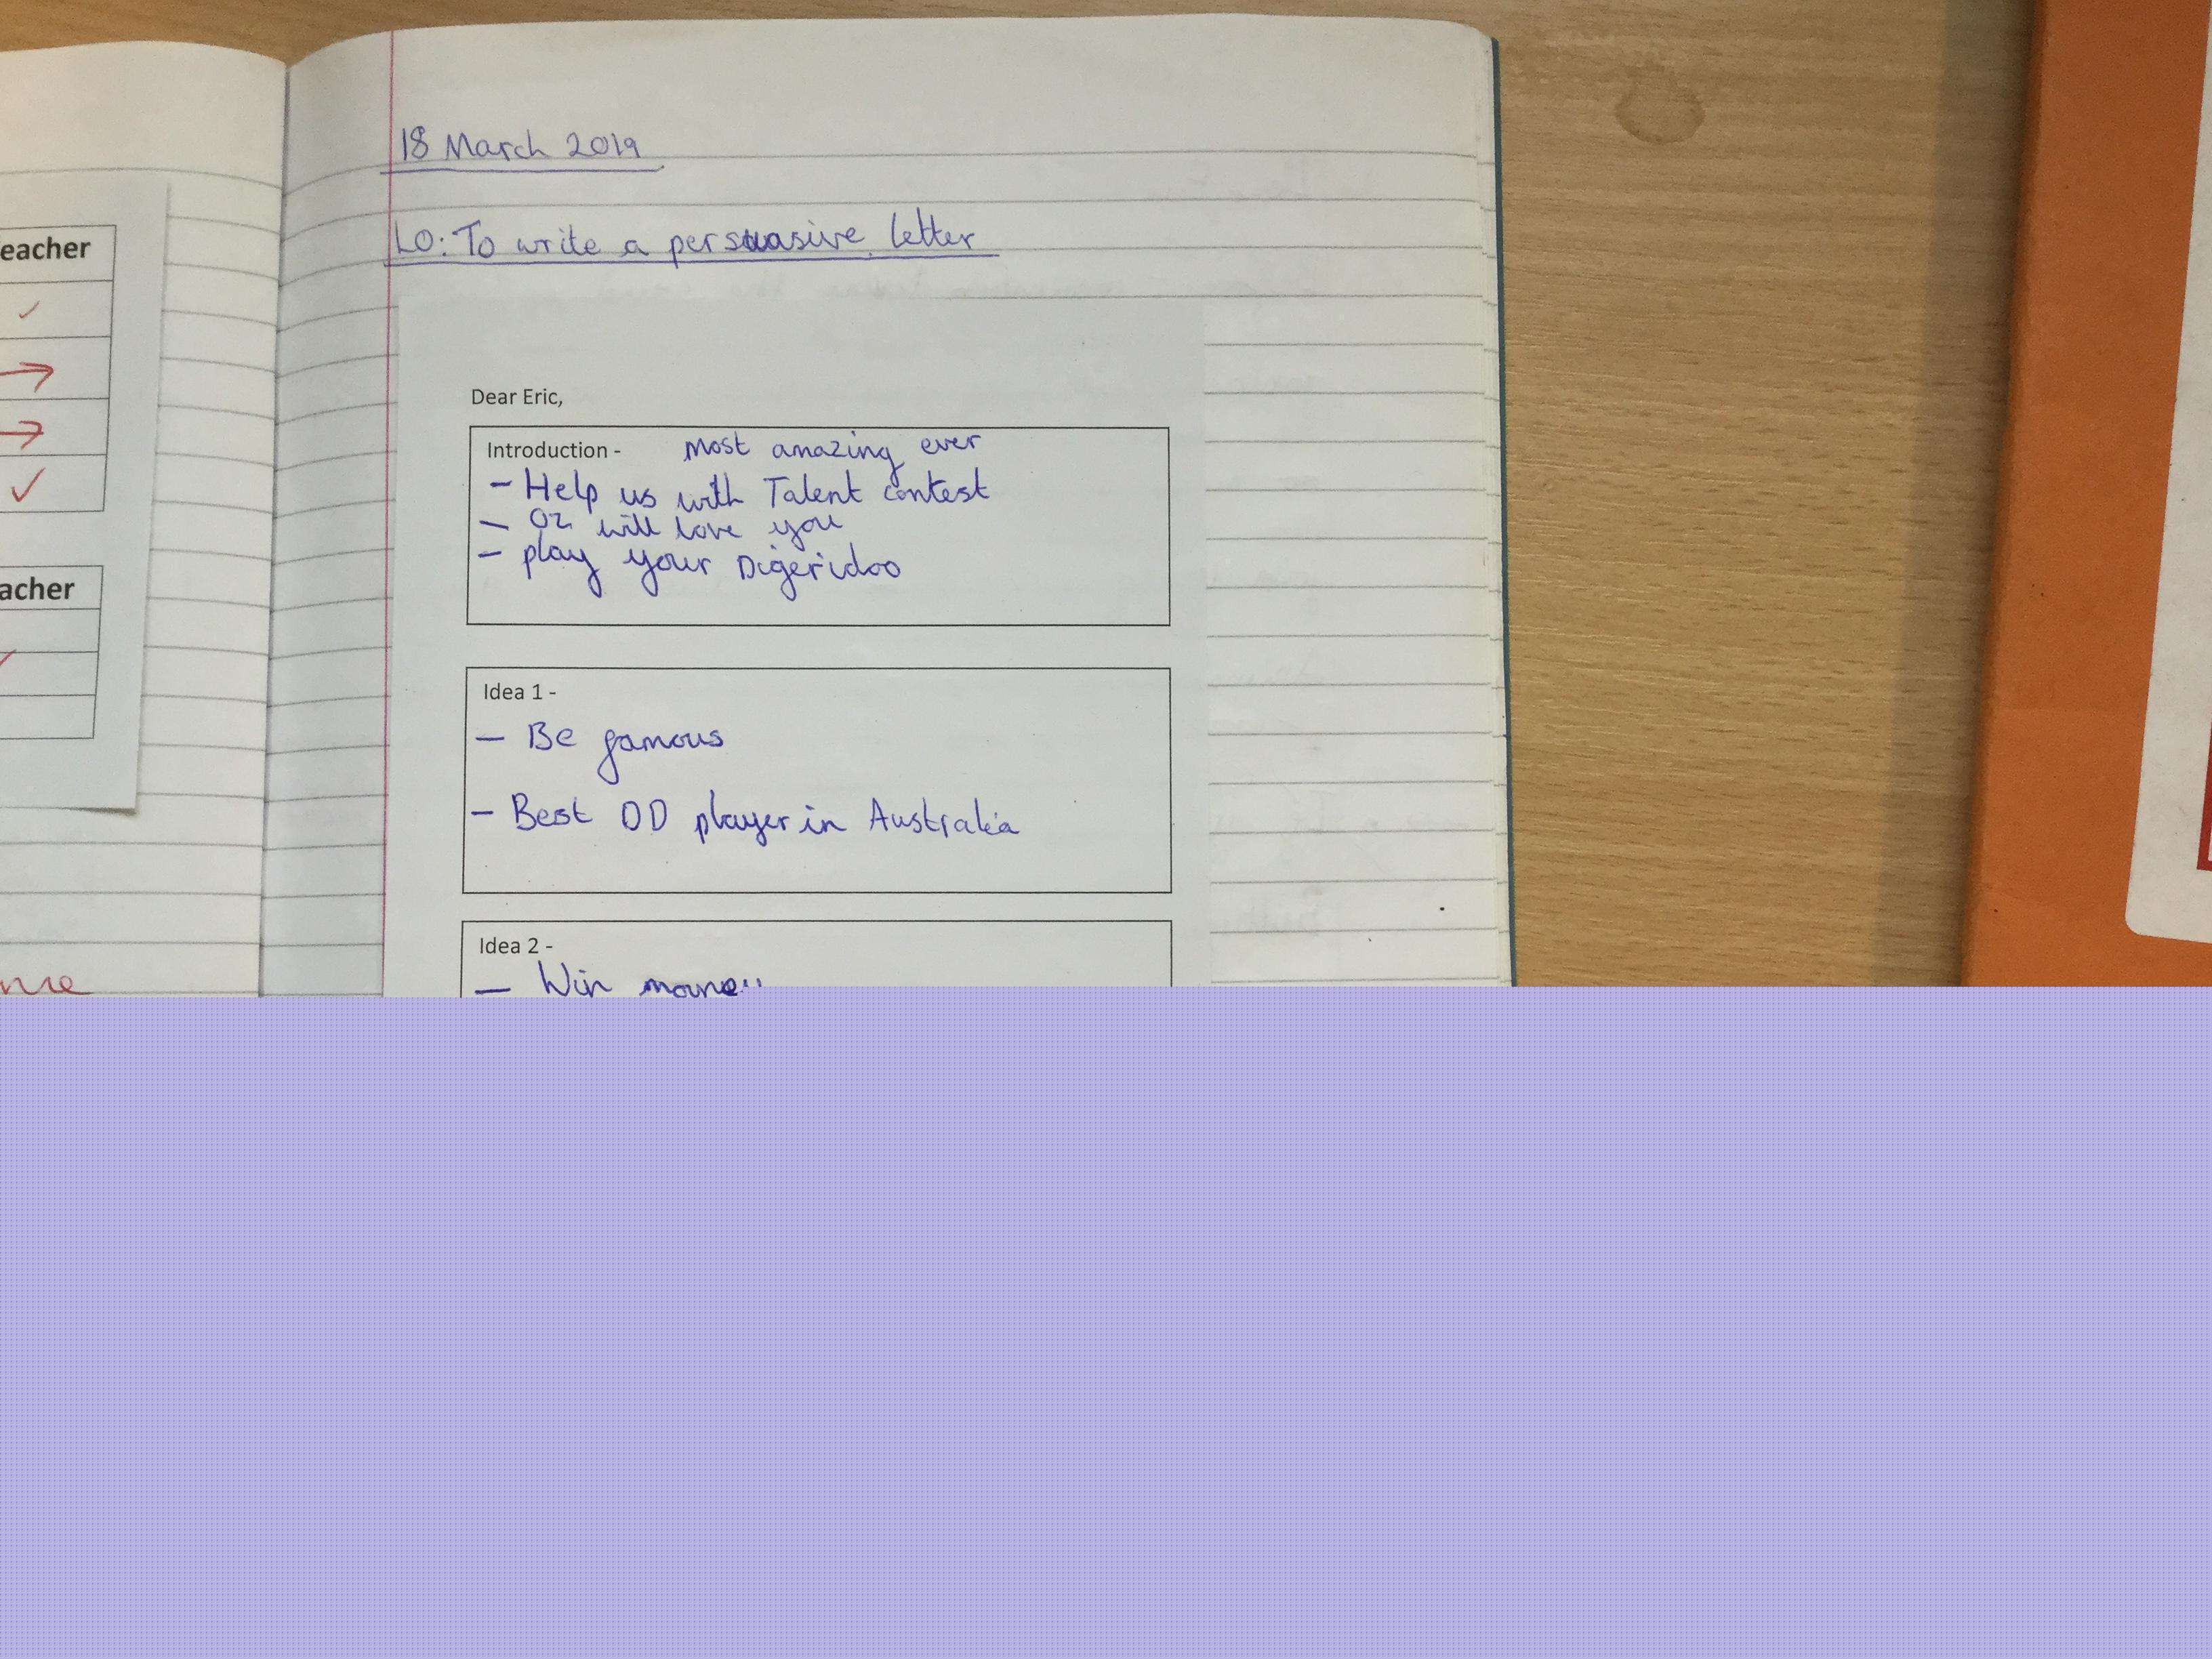 eacher
acher
18 March 2019
LO: To write a persuasive letter
Dear Eric,
Introduction - most amazing ever
- Help us with Talent contest
- Oz will love you
- play your Digeridoo
Idea 1 -
- Be famous
- Best DD player in Australia
Idea 2 -
- Win